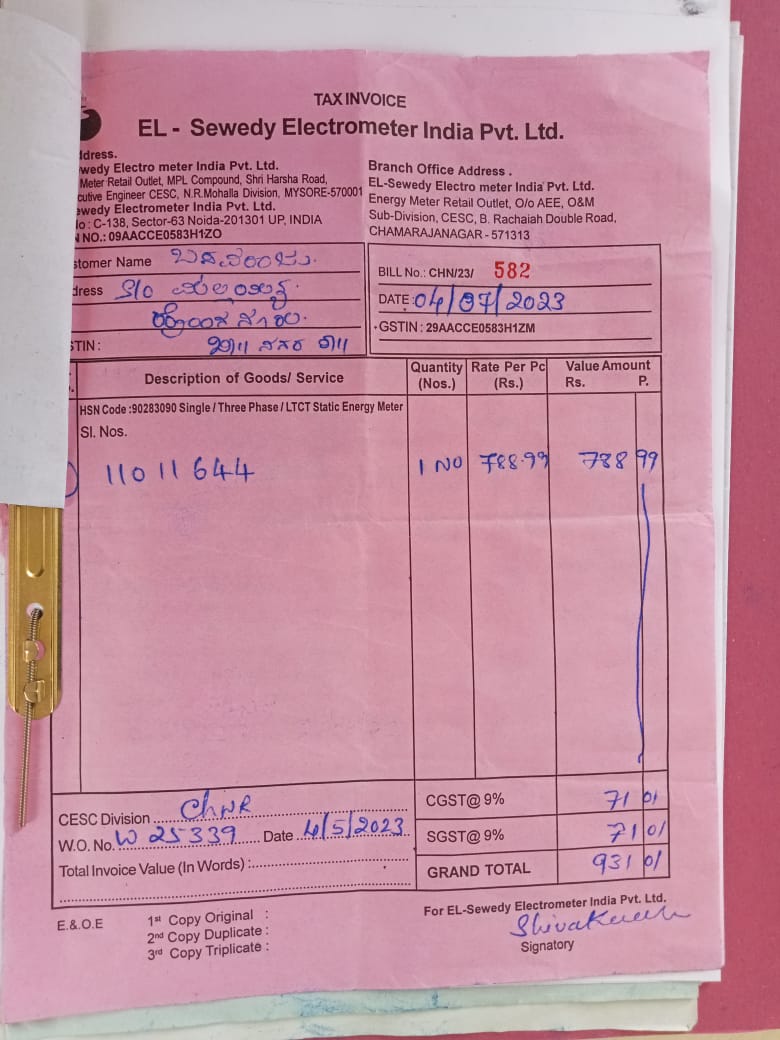 TAX INVOICE
EL - Sewedy Electrometer India Pvt. Ltd.
ddress.
wedy Electro meter India Pvt. Ltd.
Meter Retail Outlet, MPL Compound, Shri Harsha Road,
cutive Engineer CESC, N.R.Mohalla Division, MYSORE-570001
ewedy Electrometer India Pvt. Ltd.
o : C-138, Sector-63 Noida-201301 UP, INDIA
N NO.: 09AACCE0583H1ZO
Branch Office Address .
EL-Sewedy Electro meter India Pvt. Ltd.
Energy Meter Retail Outlet, O/o AEE, O&M
Sub-Division, CESC, B. Rachaiah Double Road,
CHAMARAJANAGAR - 571313
stomer Name
dress S/o
STIN :
BILL No.: CHN/23/ 582
DATE: 04/07/2023
GSTIN : 29AACCE0583H1ZM
Description of Goods/ Service Quantity (Nos.) Rate Per Pc (Rs.) Value Amount Rs. P.
HSN Code :90283090 Single / Three Phase / LTCT Static Energy Meter
Sl. Nos.
11011644 1 NO 788.99 788 99
CESC Division ChNR CGST@ 9% 71 01
W.O. No. W 25339 Date 4/5/2023 SGST@ 9% 71 01
Total Invoice Value (In Words) : GRAND TOTAL 931 01
For EL-Sewedy Electrometer India Pvt. Ltd.
E.&.O.E 1st Copy Original :
2nd Copy Duplicate :
3rd Copy Triplicate :
Signatory